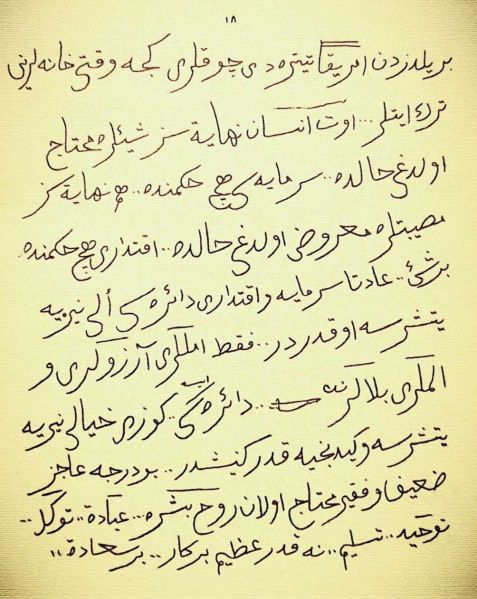 ١٨
بر يلدزدن امريقا تيتره دى چوقلرى كجه وقتى خانه لرينى
ترك ايتلر... اوت انسان نهاية سز شيئلره محتاج
اولدغى حالده.. سرمايه سى هيچ حكمنده.. هم نهاية سز
مصيبتلره معروض اولدغى حالده.. اقتدارى هيچ حكمنده
برشئ.. عادتا سرمايه و اقتدارى دائره سى ألى نيريه
يتشرسه اوقدردر.. فقط امللرى آرزولرى و
الملرى بلالرى ايسه.. دائره سى كوزى خيالى نيريه
يتشرسه و كيدنجيه قدر كنيشدر.. بو درجه عاجز
ضعيف و فقير محتاج اولان روح بشره.. عبادة.. توكل..
توحيد.. تسليم.. نه قدر عظيم بر كار.. بر سعادة..